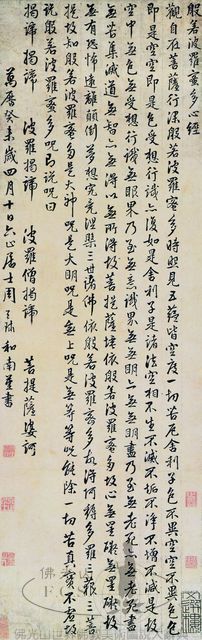 般若波羅蜜多心經
觀自在菩薩行深般若波羅蜜多時照見五蘊皆空度一切苦厄舍利子色不異空空不異色色
即是空空即是色受想行識亦復如是舍利子是諸法空相不生不滅不垢不淨不增不減是故
空中無色無受想行識無眼界乃至無意識界無無明亦無無明盡乃至無老死亦無老死盡
無苦集滅道無智亦無得以無所得故菩提薩埵依般若波羅蜜多故心無罣礙無罣礙故
無有恐怖遠離顛倒夢想究竟涅槃三世諸佛依般若波羅蜜多故得阿耨多羅三藐三菩
提故知般若波羅蜜多是大神咒是大明咒是無上咒是無等等咒能除一切苦真實不虛故
說般若波羅蜜多咒即說咒曰
揭諦揭諦 波羅揭諦 波羅僧揭諦 菩提薩婆訶
萬曆癸未歲四月十日六止居士周天球和南謹書
佛光山